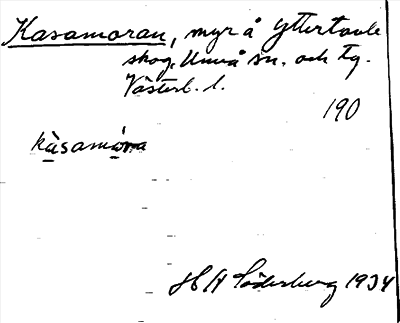 Kasamoran, myr å Yttertavle
skog, Umeå sn. och tg.
Västerb. l.
190
kàsamó̱ra
H A Söderberg 1934